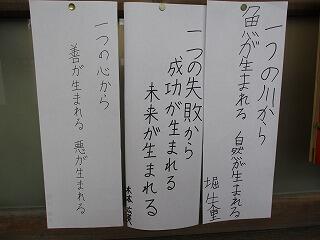 一つの川から
魚が生まれる 自然が生まれる
一つの失敗から
成功が生まれる
未来が生まれる
一つの心から
善が生まれる 悪が生まれる